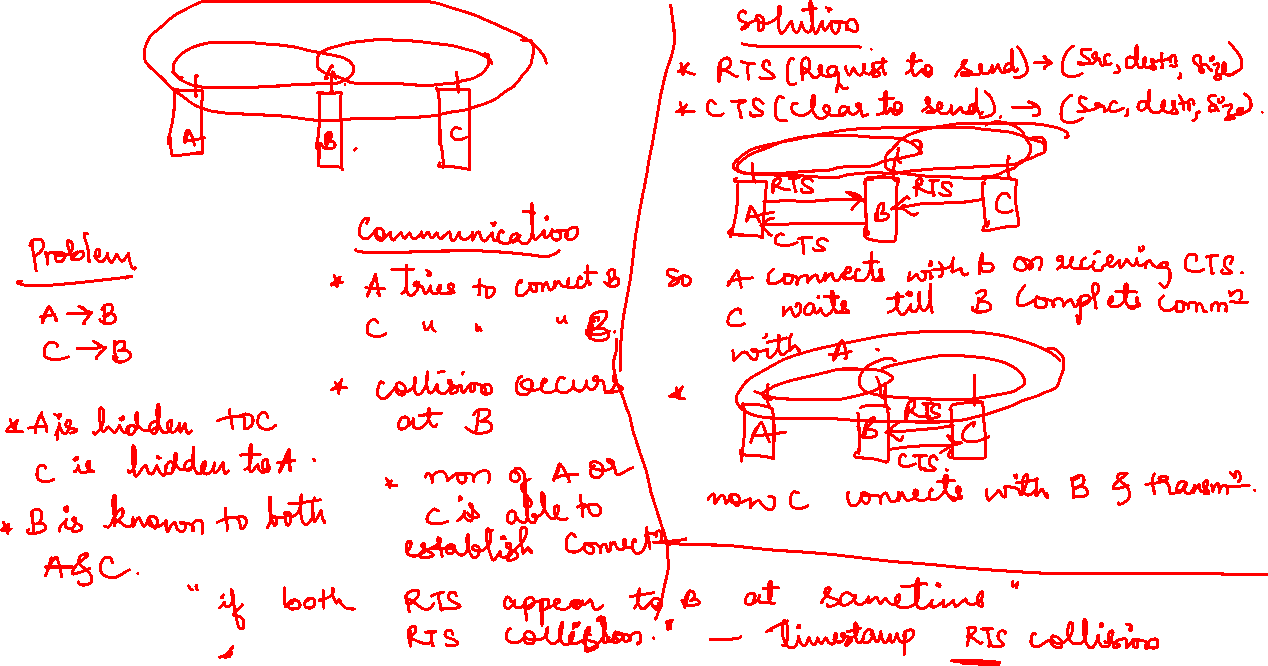 A
B
C
Problem
A → B
C → B
* A is hidden to C
C is hidden to A.
* B is known to both
A & C.
Communication
* A tries to connect B
C " " " B
* collision occurs
at B
* non of A or
C is able to
establish Connectn
Solution
* RTS (Request to send) → (src, destn, size)
* CTS (Clear to send) → (src, destn, size).
RTS
RTS
A
B
C
CTS
so A connects with B on recieving CTS.
C waits till B Complete Commn
with A.
*
RTS
A
B
C
CTS
now C connects with B & transmn.
"if both RTS appear to B at sametime"
RTS collision." — Timestamp RTS collision